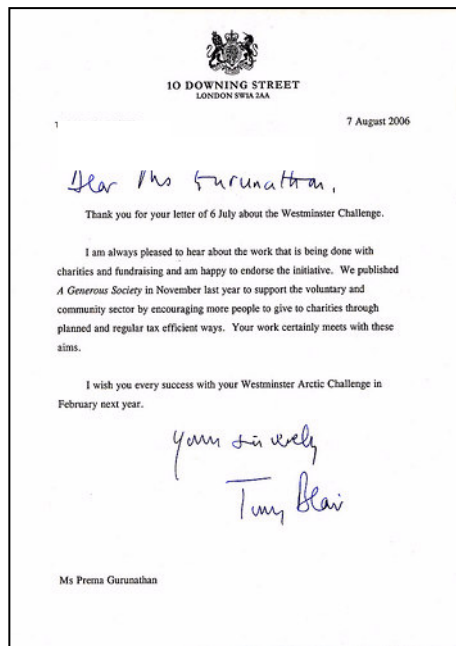 10 DOWNING STREET
LONDON SW1A 2AA
7 August 2006
Dear Ms Gurunathan,
Thank you for your letter of 6 July about the Westminster Challenge.
I am always pleased to hear about the work that is being done with
charities and fundraising and am happy to endorse the initiative. We published
A Generous Society in November last year to support the voluntary and
community sector by encouraging more people to give to charities through
planned and regular tax efficient ways. Your work certainly meets with these
aims.
I wish you every success with your Westminster Arctic Challenge in
February next year.
Yours sincerely
Tony Blair
Ms Prema Gurunathan